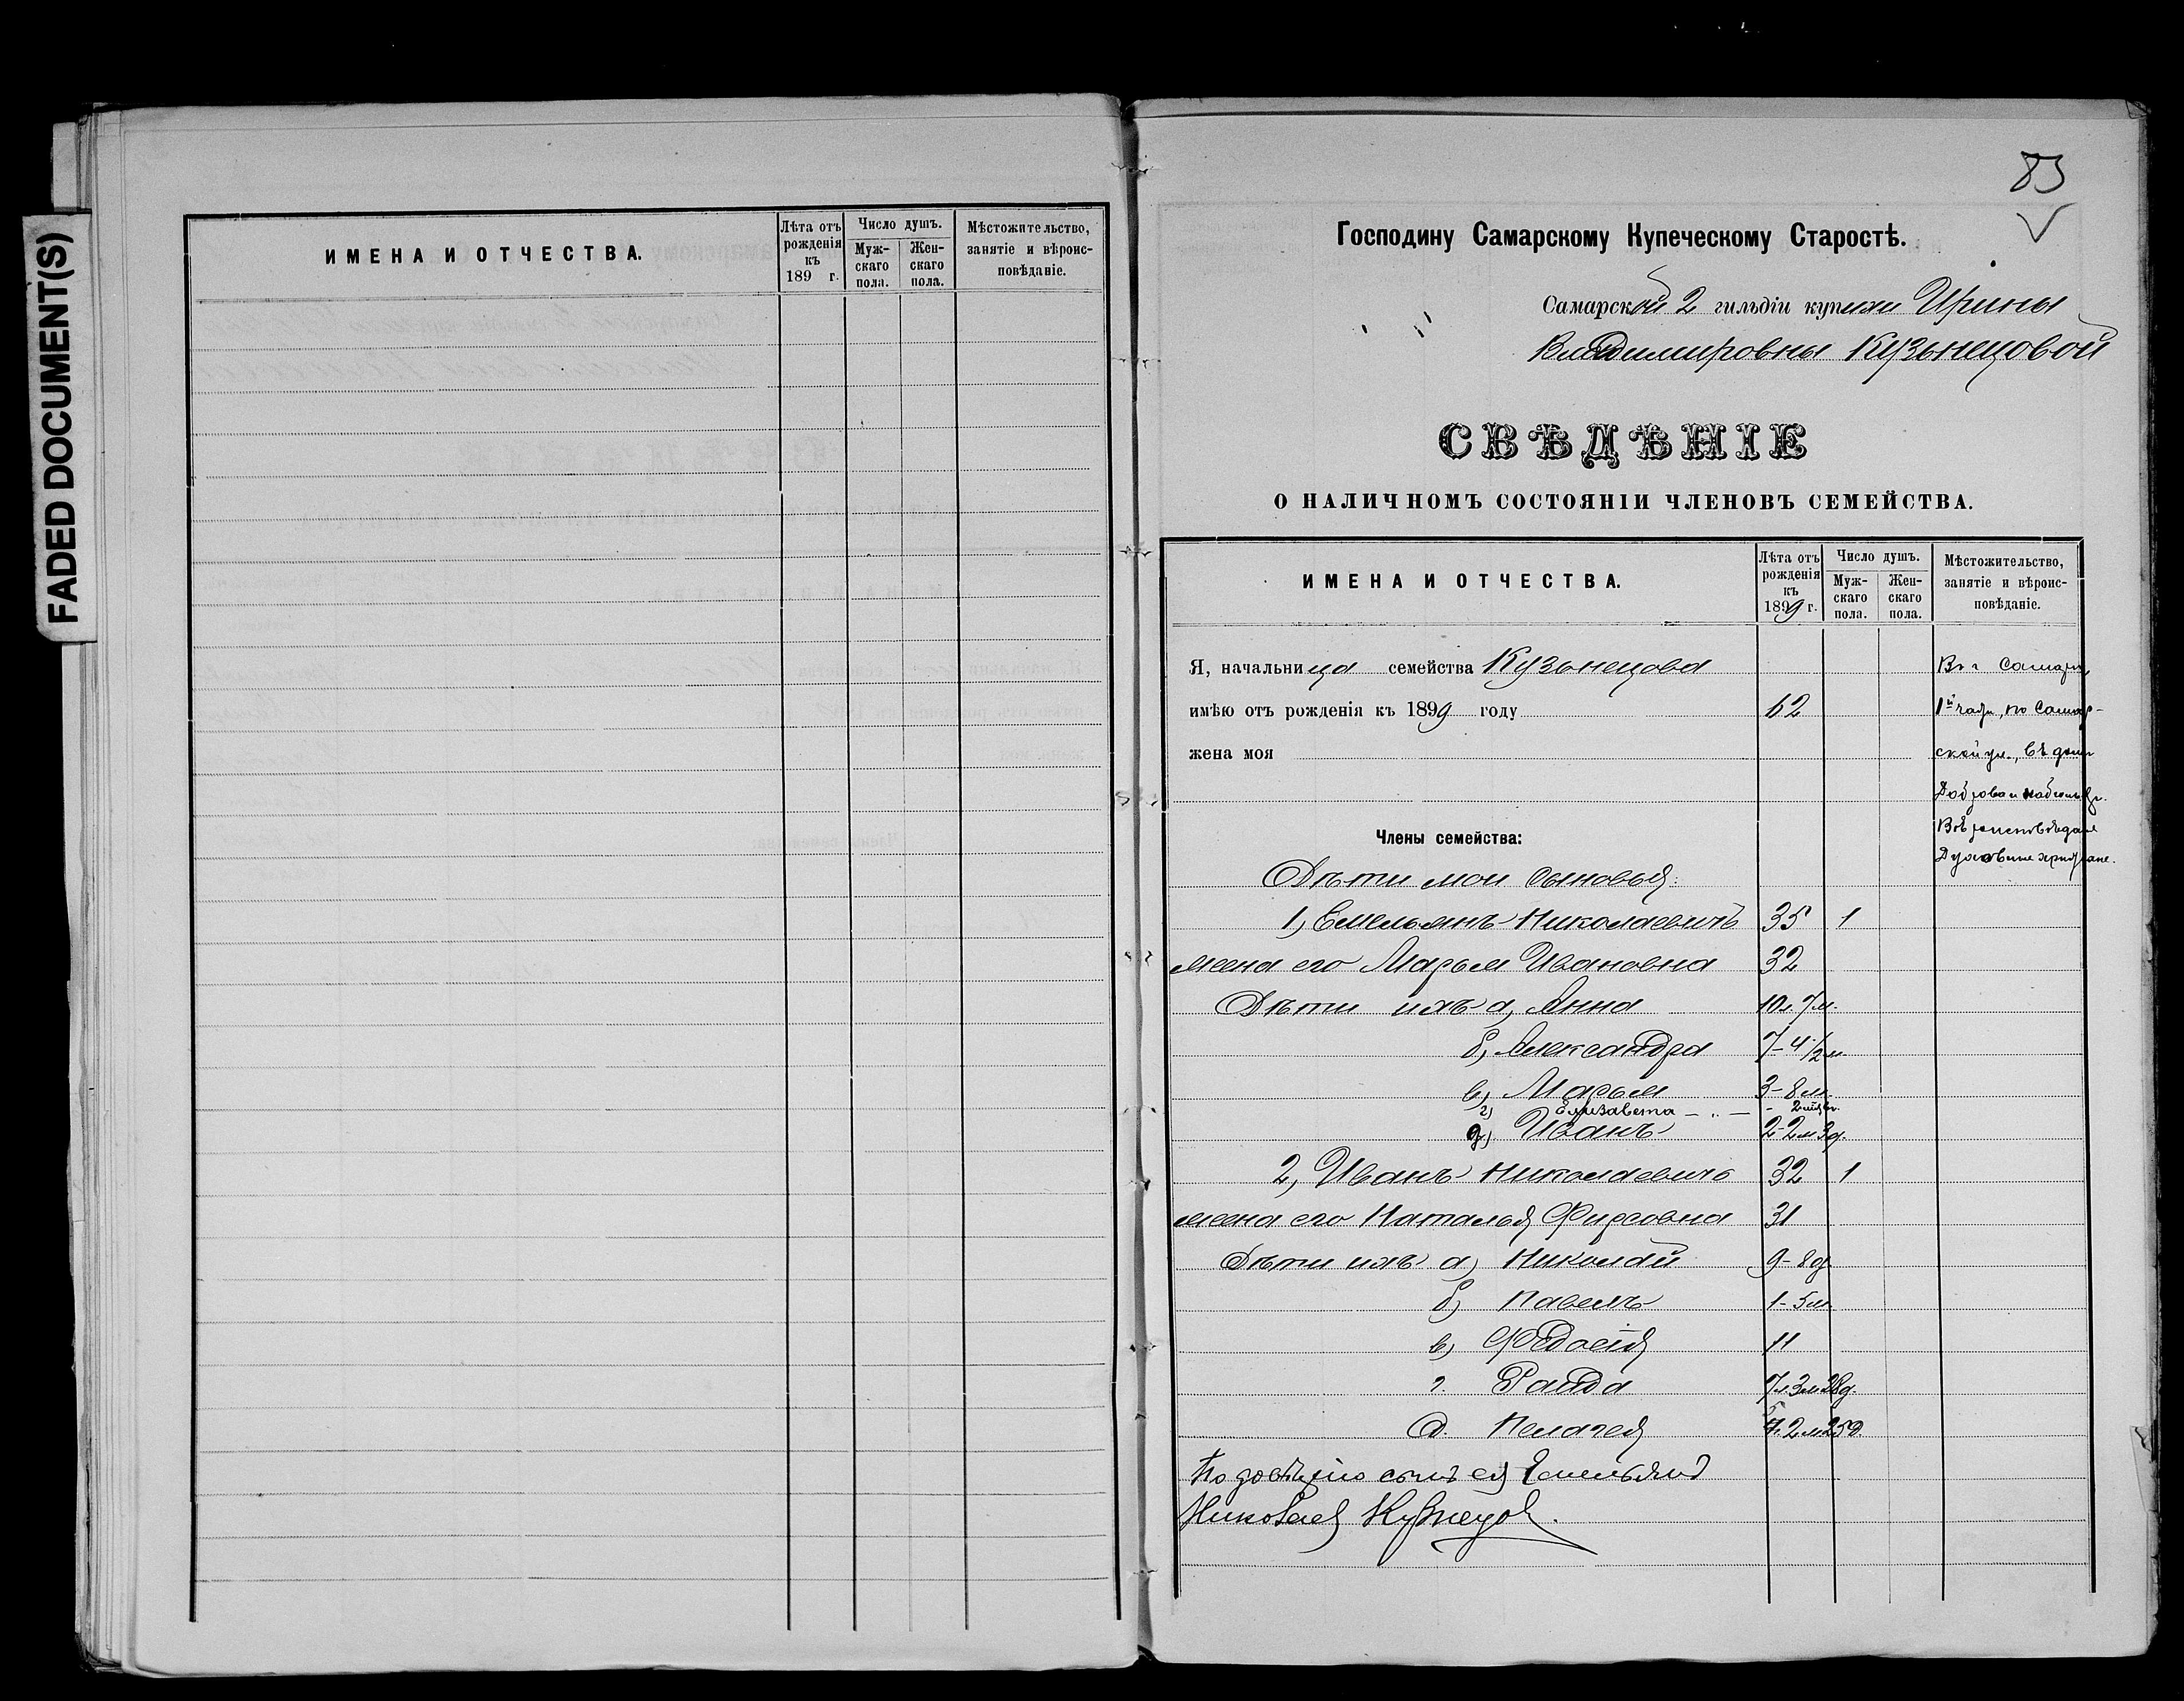 FADED DOCUMENT(S)
ИМЕНА И ОТЧЕСТВА.
Лѣта отъ рожденія къ 189 г.
Число душъ.
Мужскаго пола.
Женскаго пола.
Мѣстожительство, занятіе и вѣроисповѣданіе.
83
Господину Самарскому Купеческому Старостѣ.
Самарской 2 гильдіи купчихи Ирины
Владимировны Кузьнецовой
СВѢДѢНІЕ
О НАЛИЧНОМЪ СОСТОЯНІИ ЧЛЕНОВЪ СЕМЕЙСТВА.
ИМЕНА И ОТЧЕСТВА.
Лѣта отъ рожденія къ 1899 г.
Число душъ.
Мужскаго пола.
Женскаго пола.
Мѣстожительство, занятіе и вѣроисповѣданіе.
Я, начальница семейства Кузьнецова
имѣю отъ рожденія къ 1899 году 62
жена моя
Въ г. Самарѣ,
1й части, по Самар-
ской ул., въ домѣ
Вѣроисповѣданіе
Члены семейства:
Дѣти мои сыновья:
1, Емельянъ Николаевичъ 35 1
жена его Марья Ивановна 32
Дѣти ихъ а, Анна 10 л. 7 м.
б, Александра 7- 4 1/2 м
в, Марья 3- 8 м.
г) Елизавета - " - - 2 мѣс.
д) Иванъ 2- 2 м 3 д.
2, Иванъ Николаевичъ 32 1
жена его Наталья Фирсовна 31
Дѣти ихъ а, Николай 9- 8 д.
б) Павелъ 1- 5 м.
в) Федосія 11
г. Раида 7 л. 3 м. 28 д.
д. Пелагея 2 м 25 д.
По довѣрію сынъ ея Емельянъ
Николаевъ Кузнецовъ.